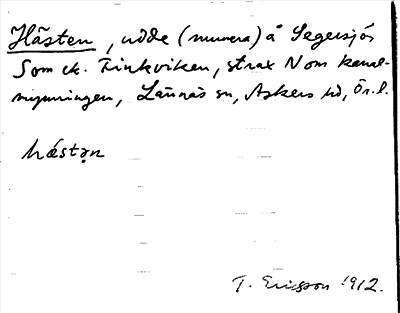 Hästen, udde (numera) å Segersjös
Som ek. Finkviken, strax N om kanal-
mynningen, Lännäs sn, Askers hd, Ör. l.
hästən
T. Ericsson 1912.